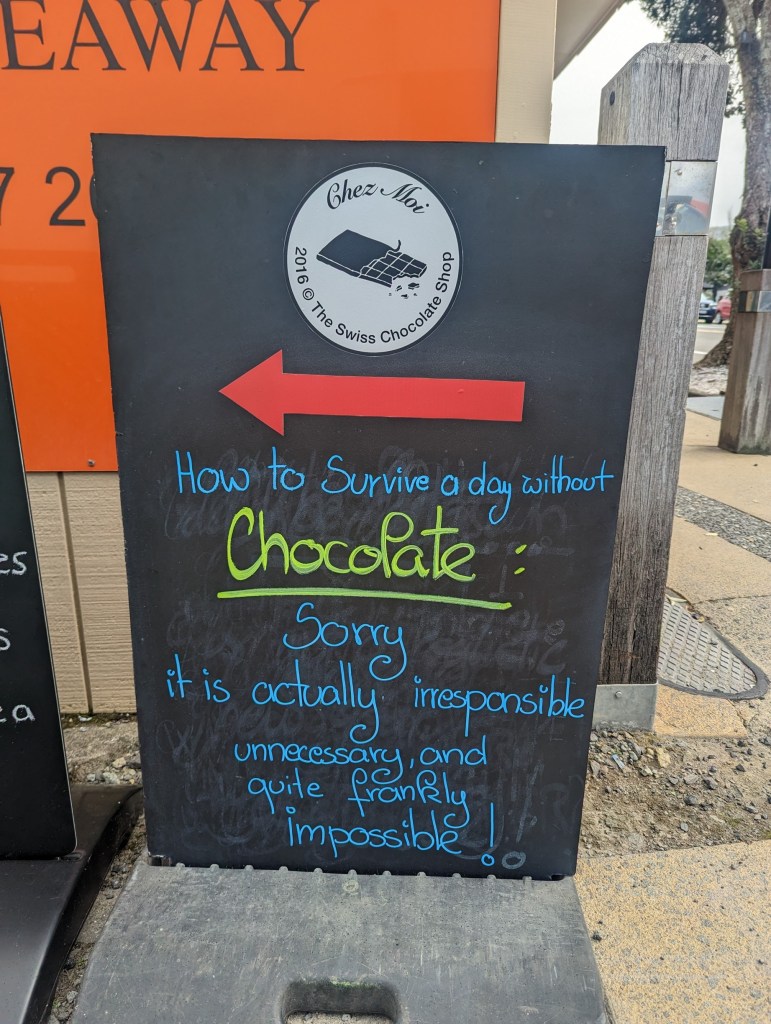 EAWAY
7 20
Chez Moi
2016 © The Swiss Chocolate Shop
How to Survive a day without
Chocolate :
Sorry
it is actually irresponsible
unnecessary, and
quite frankly
impossible!
es
s
ea